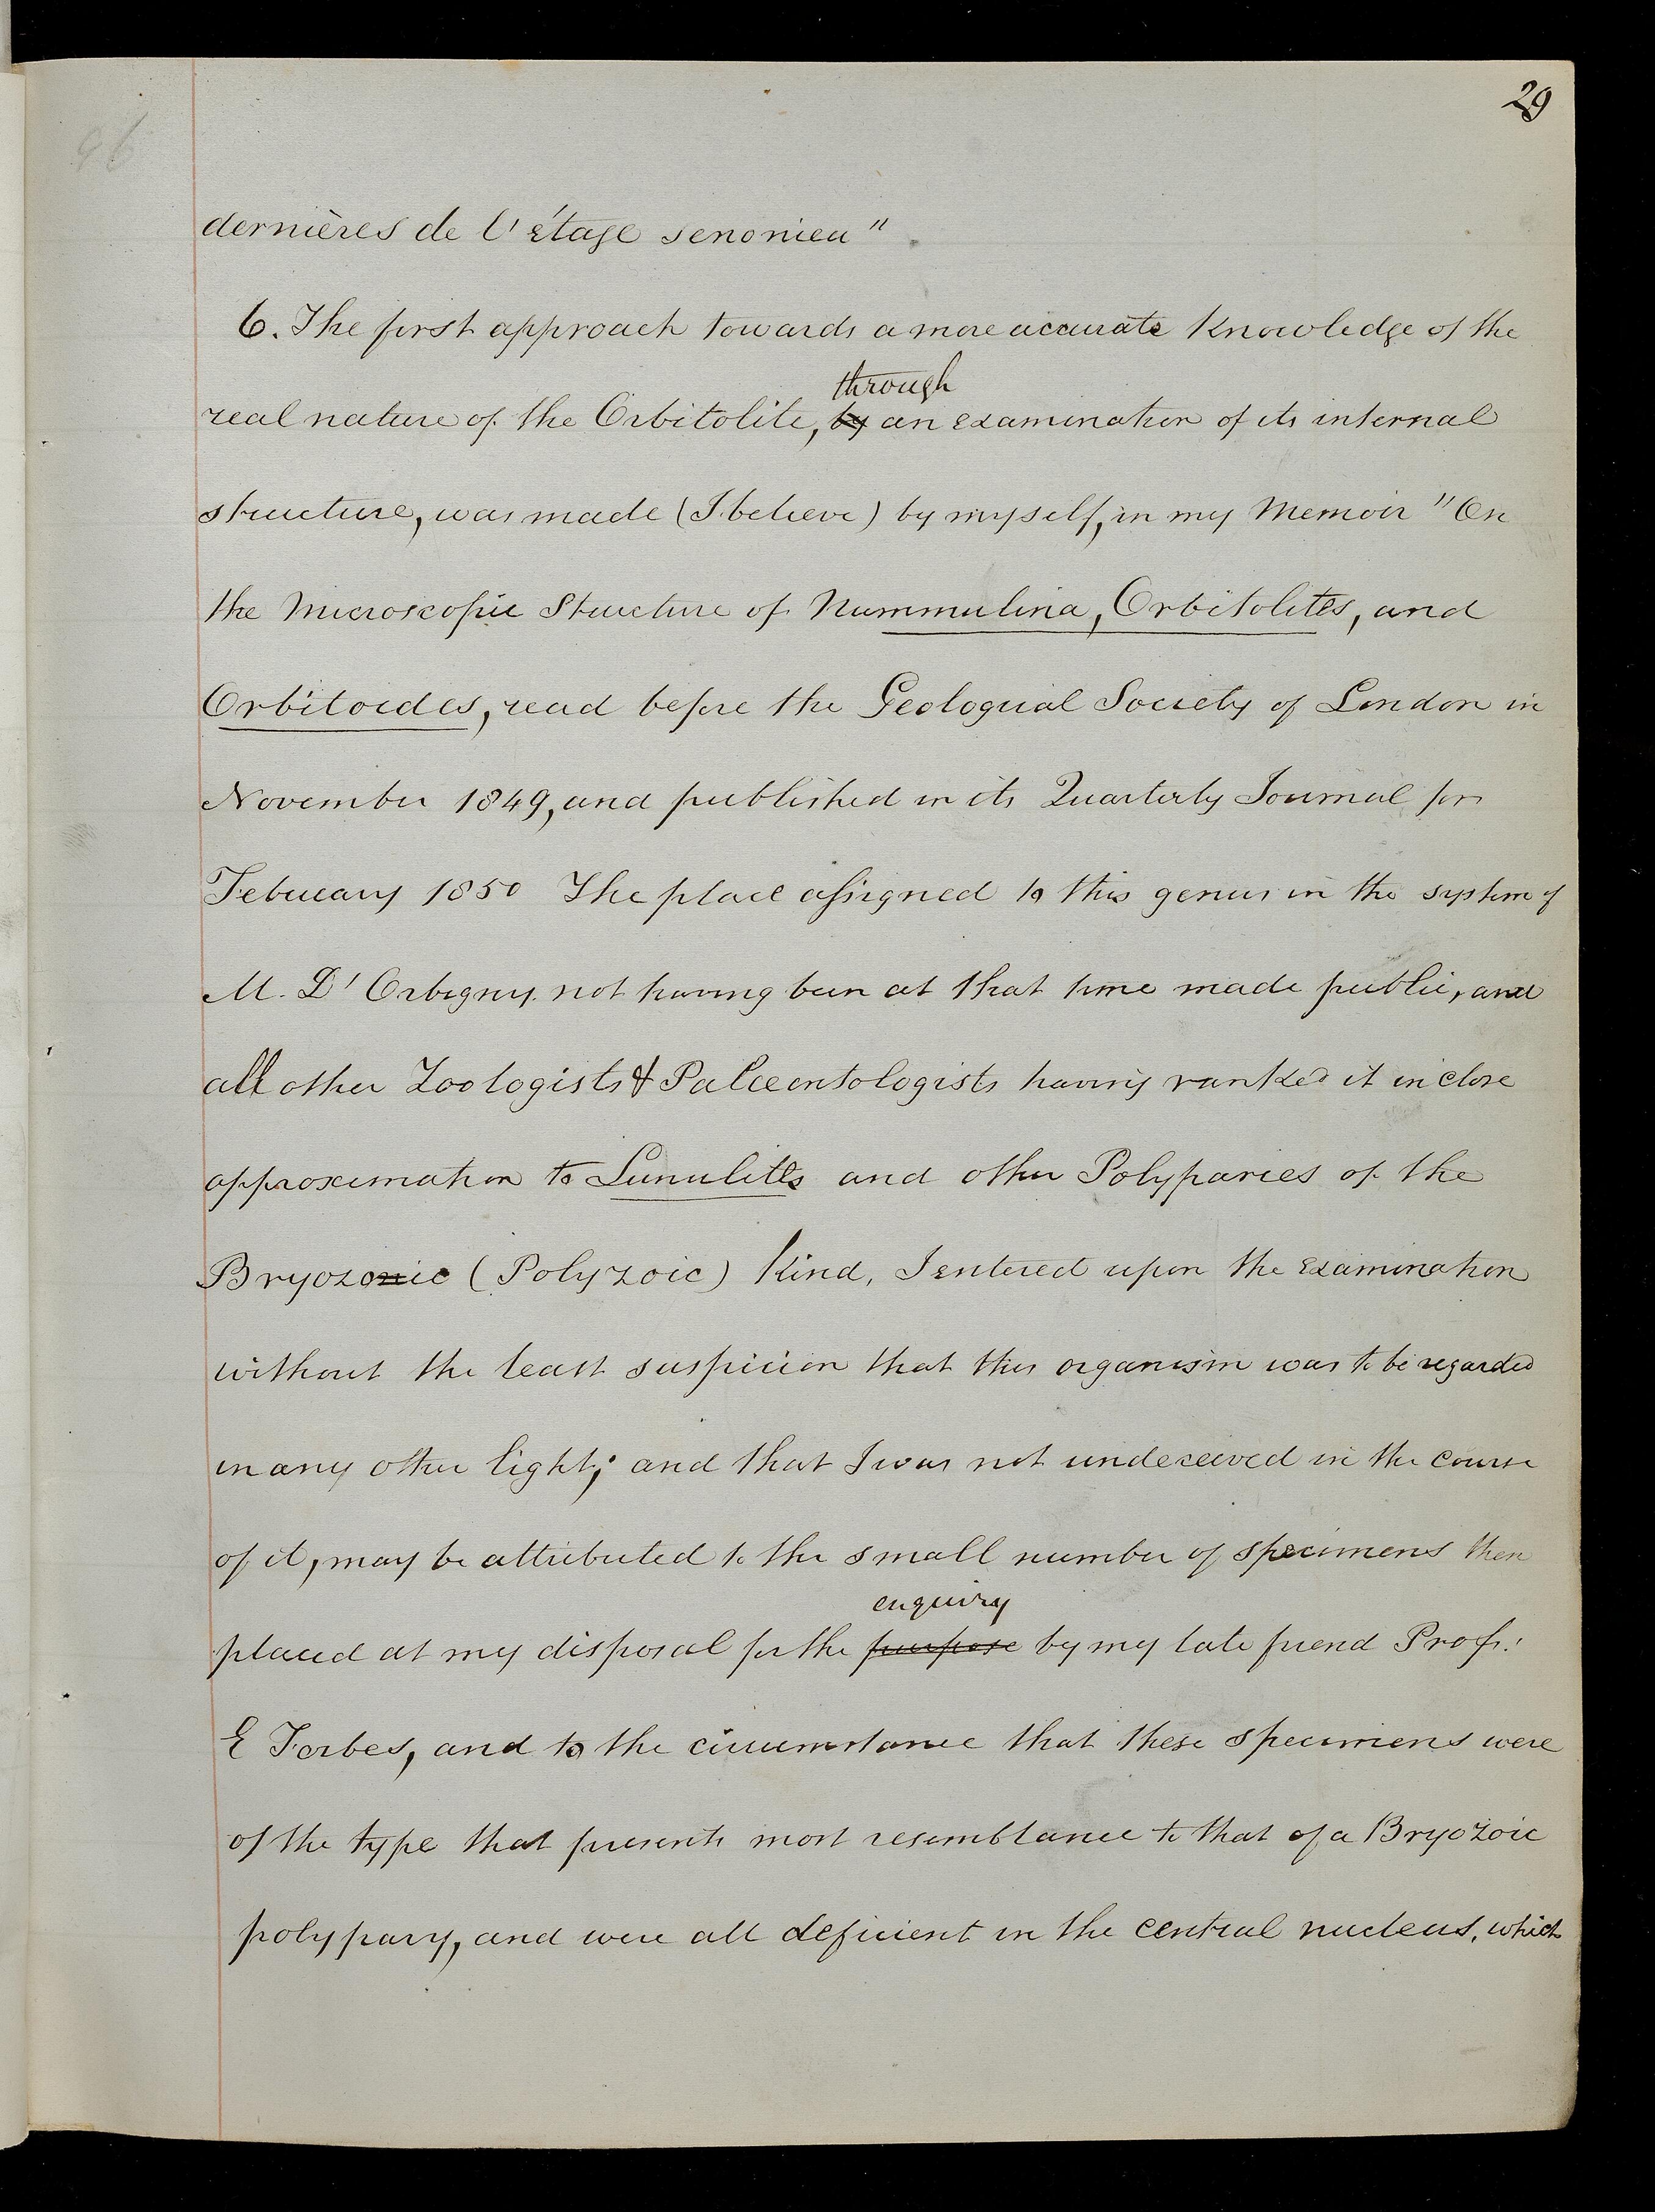 29
96
dernières de l'étage senonien"
6. The first approach towards a more accurate Knowledge of the
through
real nature of the Orbitolite, by an examination of its internal
structure, was made (I believe) by myself, in my Memoir "On
the Microscopic Structure of Nummulina, Orbitolites, and
Orbitoides, read before the Geological Society of London in
November 1849, and published in its Quarterly Journal for
February 1850 The place assigned to this genus in the system of
M. D'Orbigny not having been at that time made public, and
all other Zoologists & Palæontologists having ranked it in close
approximation to Lunulites and other Polyparies of the
Bryozonic (Polyzoic) Kind, I entered upon the examination
without the least suspicion that this organism was to be regarded
in any other light; and that I was not undeceived in the course
of it, may be attributed to the small number of specimens then
enquiry
placed at my disposal for the purpose by my late friend Profr.
E Forbes, and to the circumstance that these specimens were
of the type that presents most resemblance to that of a Bryozoic
polypary, and were all deficient in the central nucleus, which